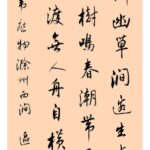 幽草澗邊生
樹鳴春潮帶
渡無人舟自橫
韋應物滁州西澗 區